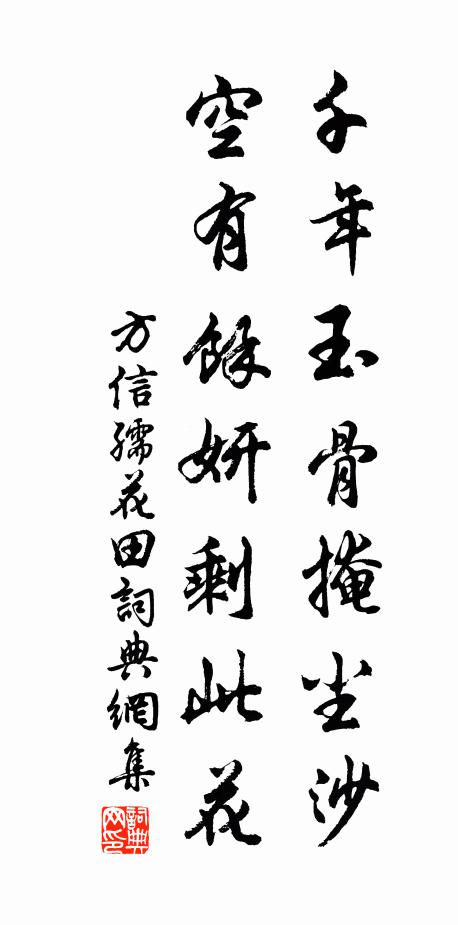 千年玉骨掩尘沙
空有餘妍剩此花
方信孺花田詞典網集
詞典网印